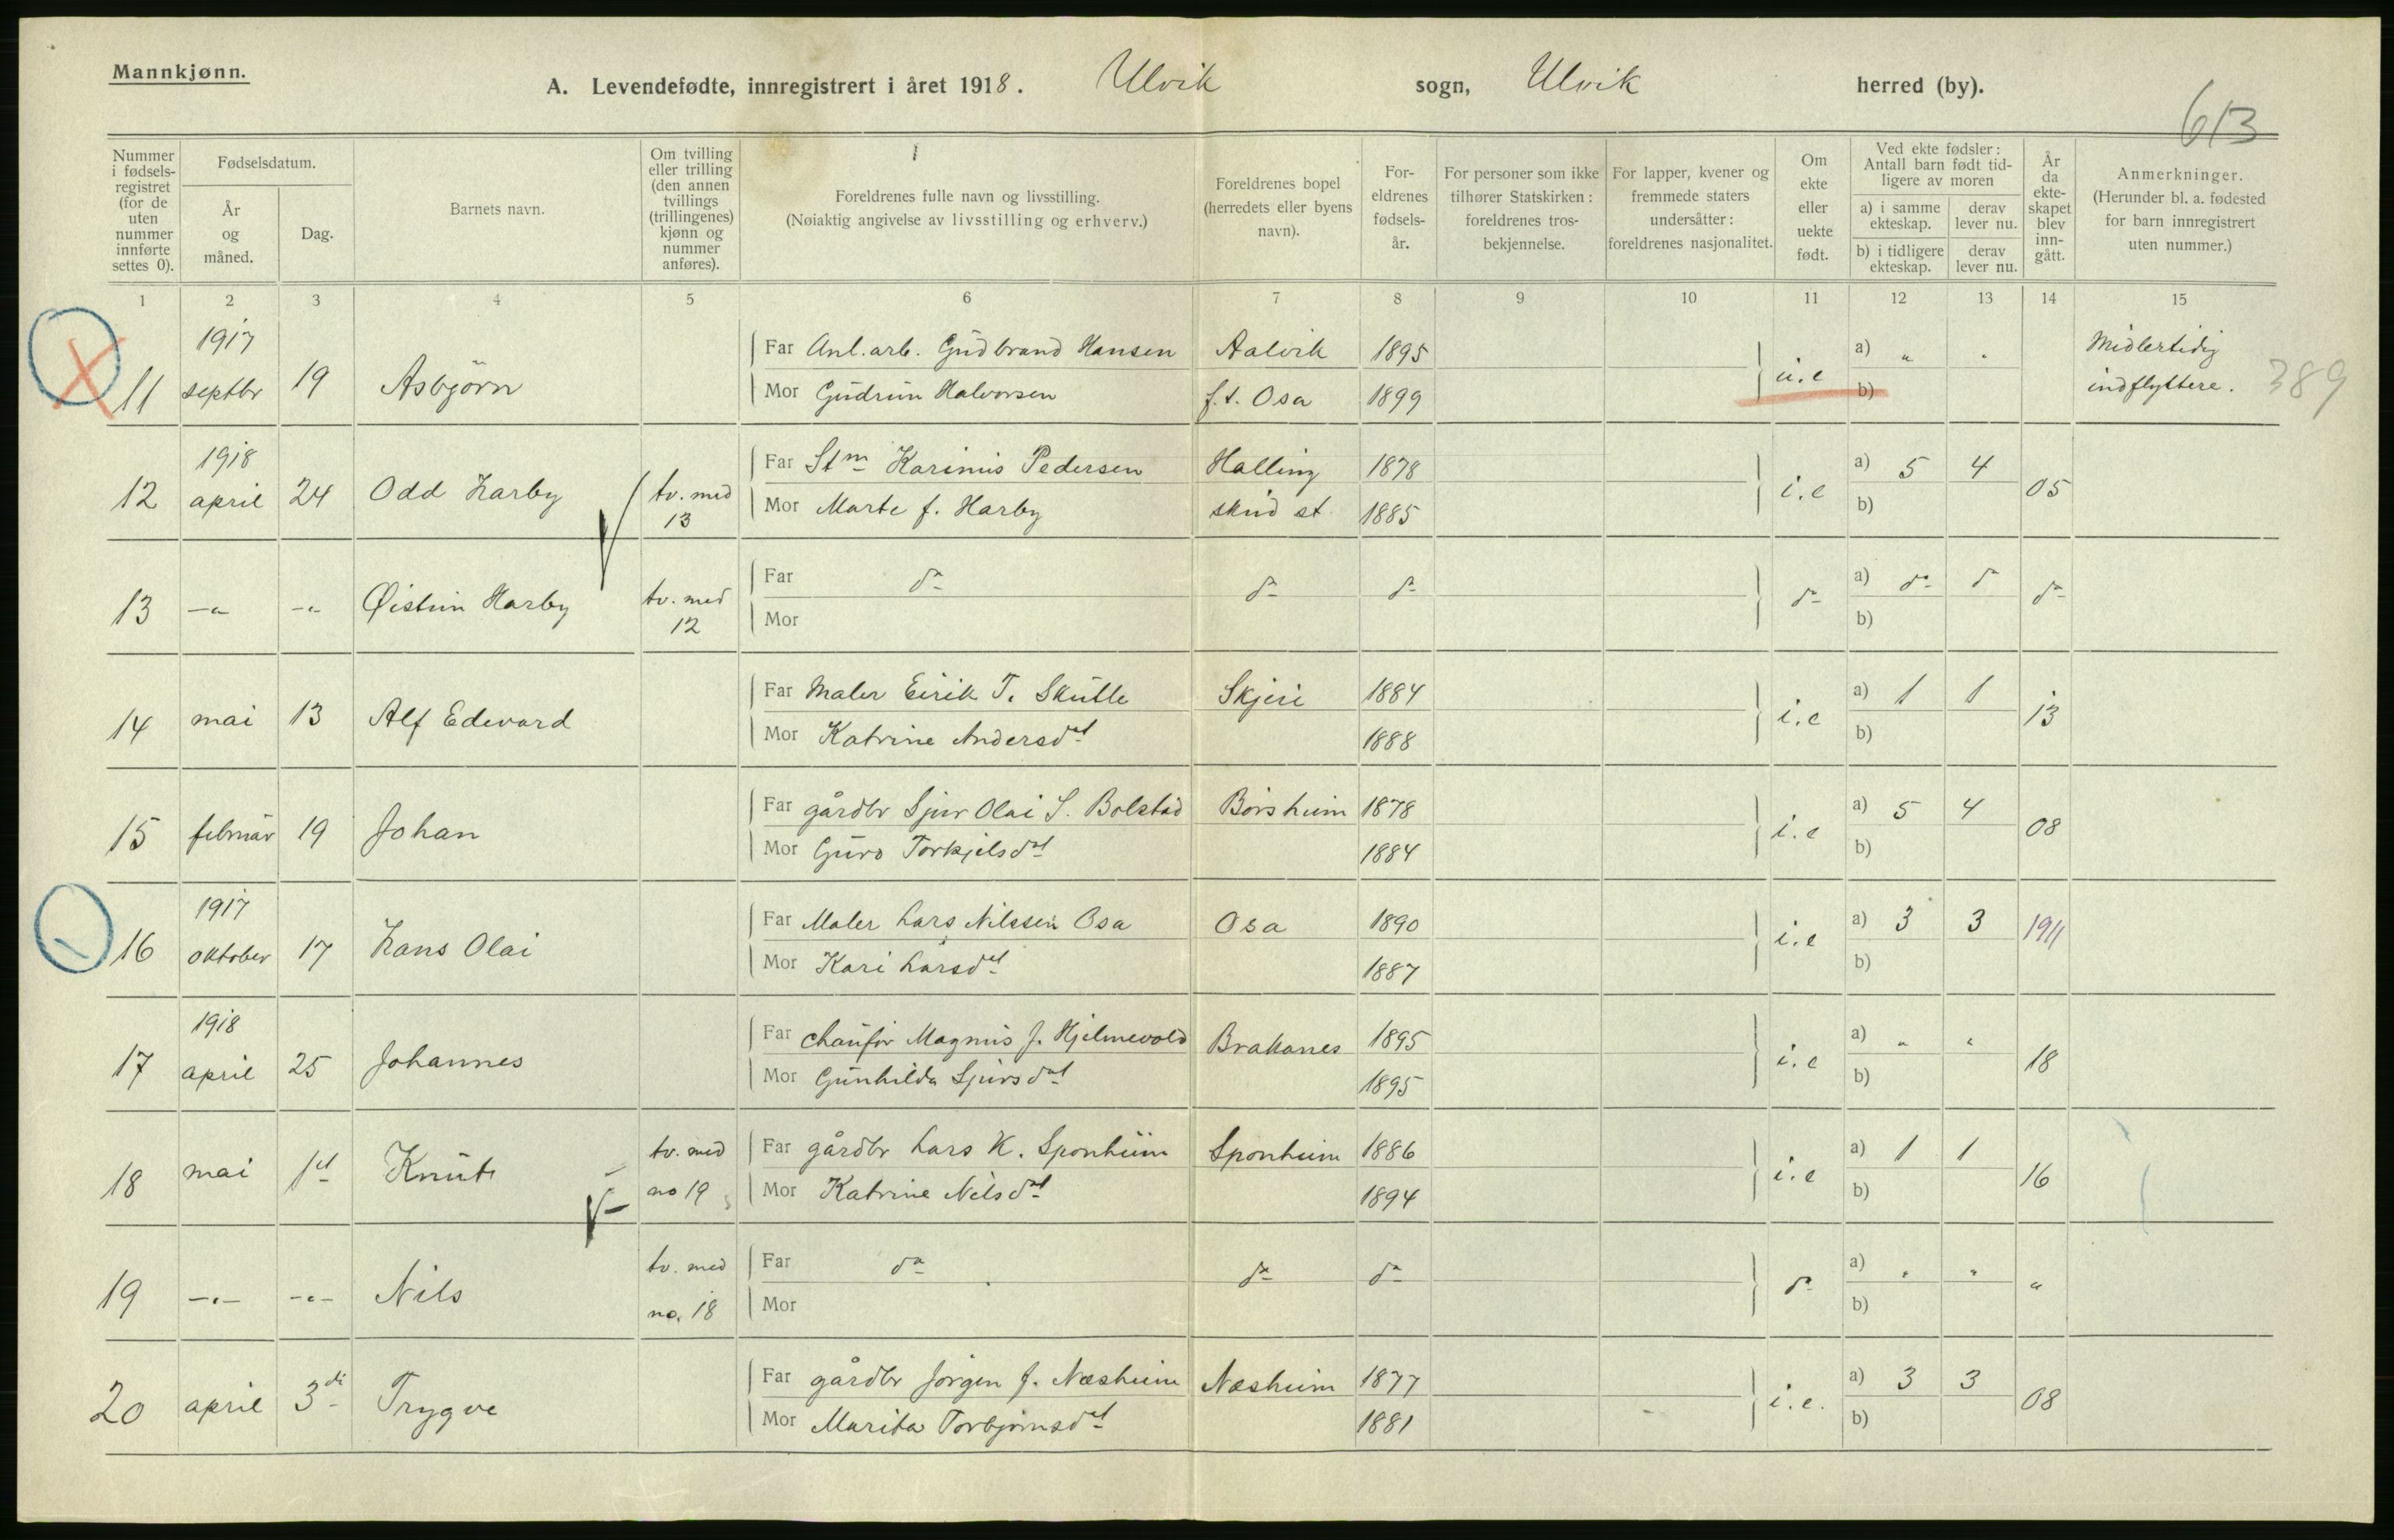 Mannkjønn.
A. Levendefødte, innregistrert i året 1918. Ulvik sogn, Ulvik herred (by).
613
Nummer i fødsels-registret (for de uten nummer innførte settes 0).
Fødselsdatum.
År og måned.
Dag.
Barnets navn.
Om tvilling eller trilling (den annen tvillings (trillingenes) kjønn og nummer anføres).
Foreldrenes fulle navn og livsstilling.
(Nøiaktig angivelse av livsstilling og erhverv.)
Foreldrenes bopel (herredets eller byens navn).
For-eldrenes fødsels-år.
For personer som ikke tilhører Statskirken: foreldrenes tros-bekjennelse.
For lapper, kvener og fremmede staters undersåtter: foreldrenes nasjonalitet.
Om ekte eller uekte født.
Ved ekte fødsler: Antall barn født tid-ligere av moren
a) i samme ekteskap.
derav lever nu.
b) i tidligere ekteskap.
derav lever nu.
År da ekte-skapet blev inn-gått.
Anmerkninger.
(Herunder bl. a. fødested for barn innregistrert uten nummer.)
1 2 3 4 5 6 7 8 9 10 11 12 13 14 15
1917 Far Anl.arb. Gudbrand Hansen Aalvik 1895 a) " " Midlertidig
11 septbr 19 Asbjörn Mor Gudrun Halvorsen f.t. Osa 1899 u.e b) indflyttere. 389
1918 Far Stm Karinus Pedersen Halling 1878 a) 5 4
12 april 24 Odd Harby tv. med 13 Mor Marte f. Harby skud st. 1885 i.e b) 05
13 -"- -"- Øistein Harby tv. med 12 Far do do do do a) do do do
Mor b)
Far Maler Eirik T. Skutle Skjeri 1884 a) 1 1
14 mai 13 Alf Edevard Mor Katrine Andersdet 1888 i.e b) 13
Far gårdbr Sjur Olai S. Bolstad Børsheim 1878 a) 5 4
15 februar 19 Johan Mor Guro Torkjelsdet 1884 i.e b) 08
1917 Far Maler Lars Nilssen Osa Osa 1890 a) 3 3
16 oktober 17 Hans Olai Mor Kari Larsdet 1887 i.e b) 1911
1918 Far chaufør Magnus J. Hjelmevold Brakanes 1895 a) " "
17 april 25 Johannes Mor Gunhilda Sjursdet 1895 i.e b) 18
Far gårdbr Lars K. Sponheim Sponheim 1886 a) 1 1
18 mai 1st Knut tv. med no 19 Mor Katrine Nilsdet 1894 i.e b) 16
19 -"- -"- Nils tv. med no. 18 Far do do do do a) " " "
Mor b)
Far gårdbr Jørgen J. Næsheim Næsheim 1877 a) 3 3
20 april 3di Trygve Mor Marita Torbjørnsdet 1881 i.e. b) 08